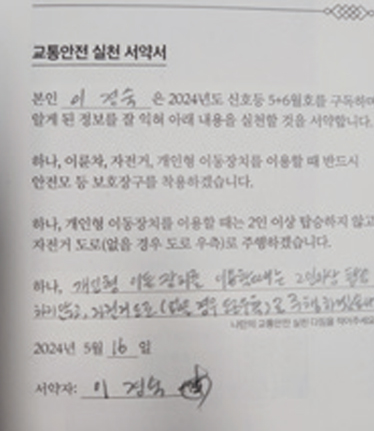 교통안전 실천 서약서
본인 이 경숙 은 2024년도 신호등 5+6월호를 구독하며
알게 된 정보를 잘 익혀 아래 내용을 실천할 것을 서약합니다.
하나, 이륜차, 자전거, 개인형 이동장치를 이용할 때 반드시
안전모 등 보호장구를 착용하겠습니다.
하나, 개인형 이동장치를 이용할 때는 2인 이상 탑승하지 않고
자전거 도로(없을 경우 도로 우측)로 주행하겠습니다.
하나, 개인형 이동장치를 이용할때는 2인이상 탑승
하지않고, 자전거도로(없을 경우 도로우측)로 주행하겠습니다
나만의 교통안전 실천 다짐을 적어주세요
2024년 5월 16 일
서약자: 이 경숙